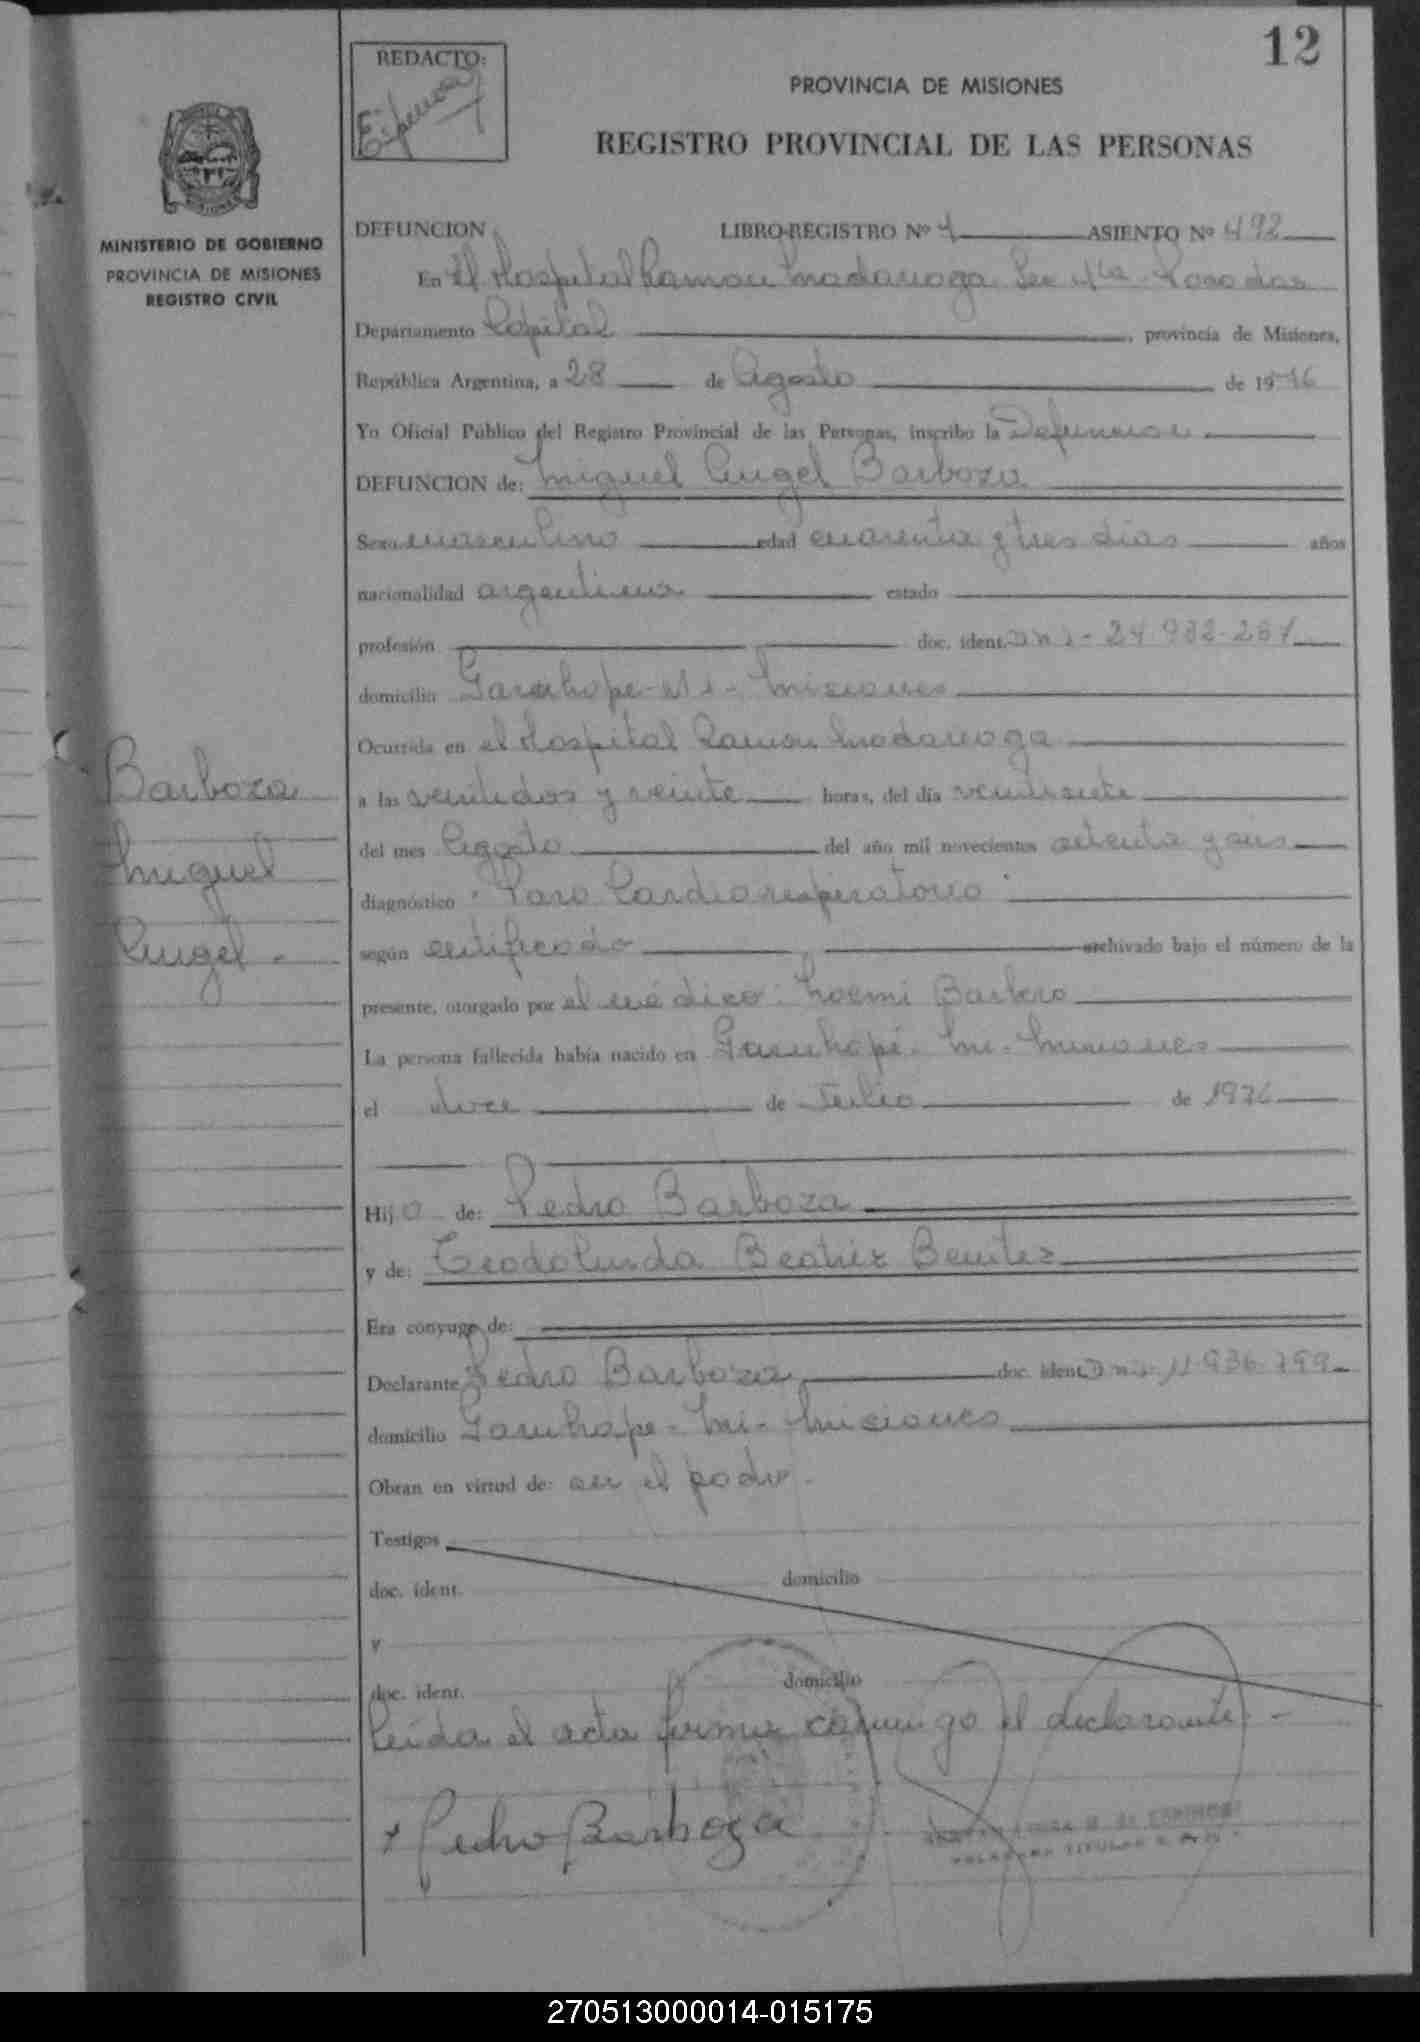 12
REDACTO:
PROVINCIA DE MISIONES
REGISTRO PROVINCIAL DE LAS PERSONAS
MINISTERIO DE GOBIERNO
PROVINCIA DE MISIONES
REGISTRO CIVIL
DEFUNCION LIBRO-REGISTRO Nº 4 ASIENTO Nº 492
En El Hospital Ramon Madariaga Sec 4ta - Posadas
Departamento Capital, provincia de Misiones,
República Argentina, a 28 de Agosto de 1976
Yo Oficial Público del Registro Provincial de las Personas, inscribo la Defuncion
DEFUNCION de: Miguel Angel Barboza
Sexo masculino edad cuarenta y tres dias años
nacionalidad argentina estado
profesión doc. ident. DNI - 24.982.267
domicilio Garuhape - Mi - Misiones
Ocurrida en el Hospital Ramon Madariaga
a las veintidos y veinte horas, del día veintisiete
del mes Agosto del año mil novecientos setenta y seis
diagnóstico "Paro Cardiorespiratorio"
según certificado archivado bajo el número de la
presente, otorgado por el médico: Noemi Barbero
La persona fallecida había nacido en Garuhapé - Mi - Misiones
el doce de Julio de 1976
Hijo de: Pedro Barboza
y de: Teodolinda Beatriz Benitez
Era conyuge de:
Declarante Pedro Barboza doc. ident. DNI - 11.936.799
domicilio Garuhape - Mi - Misiones
Obran en virtud de: ser el padre.
Testigos
doc. ident. domicilio
y
doc. ident. domicilio
Leida el acta firma conmigo el declarante. -
Pedro Barboza
Barboza
Miguel
Angel. -
270513000014-015175